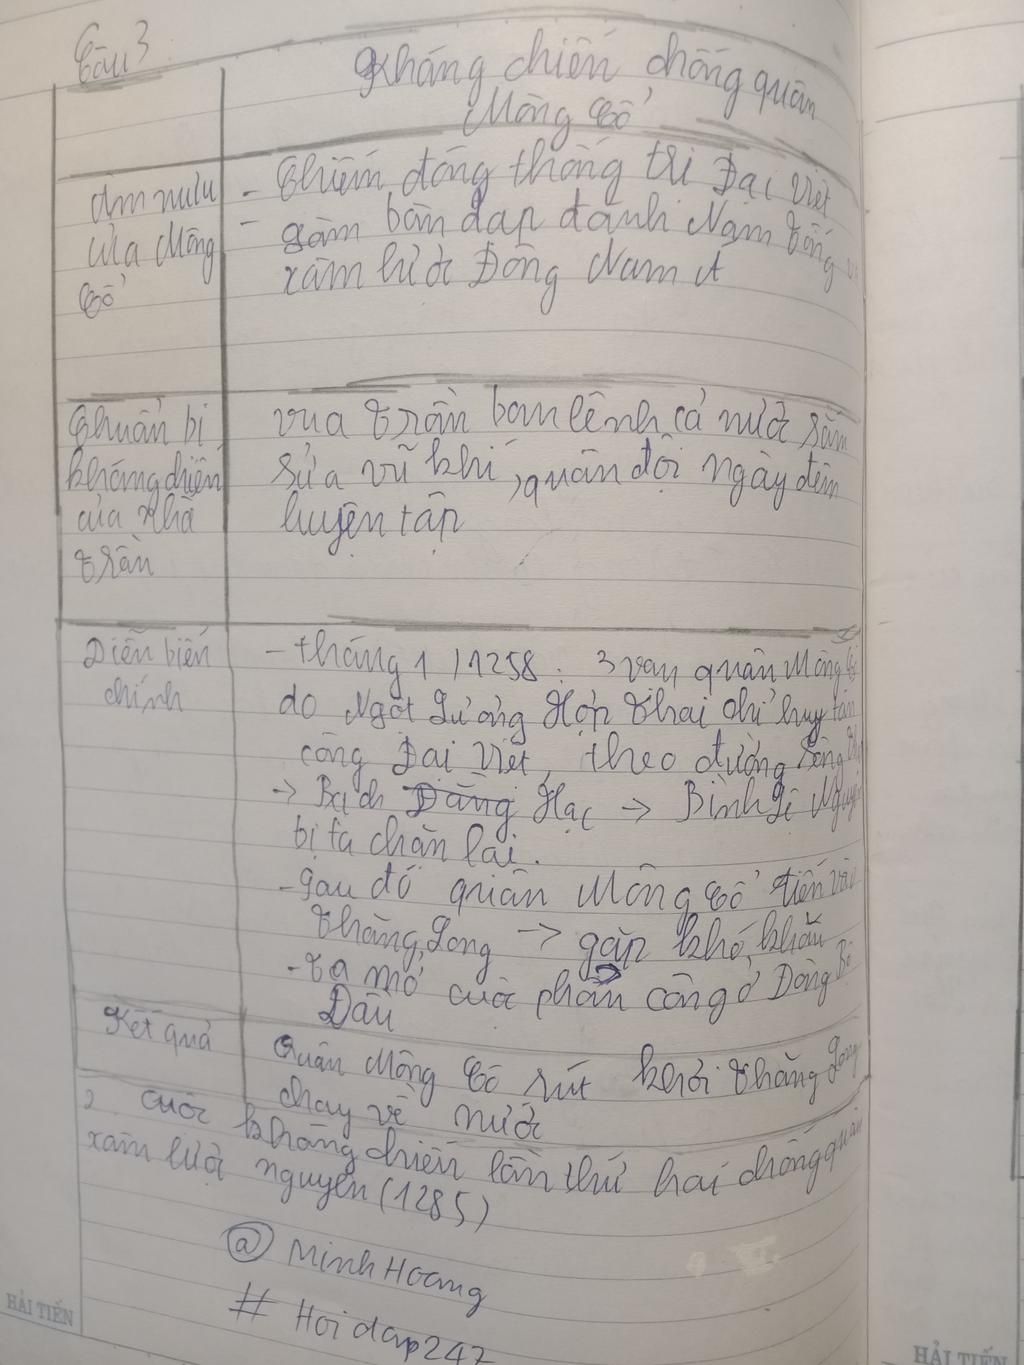 Câu 3
Kháng chiến chống quân
Mông Cổ
Âm mưu
của Mông
Cổ
- Chiếm đóng thống trị Đại Việt
- Làm bàn đạp đánh Nam Tống
xâm lược Đông Nam Á
Chuẩn bị
kháng chiến
của Nhà
Trần
vua Trần ban lệnh cả nước sắm
sửa vũ khí, quân đội ngày đêm
luyện tập
Diễn biến
chính
- tháng 1/1258: 3 vạn quân Mông Cổ
do Ngột Lương Hợp Thai chỉ huy tấn
công Đại Việt, theo đường sông
-> Bạch Hạc -> Bình Lệ Nguyên
bị ta chặn lại.
- Sau đó quân Mông Cổ tiến vào
Thăng Long -> gặp khó khăn
- Ta mở cuộc phản công ở Đông Bộ
Đầu
Kết quả
Quân Mông Cổ rút khỏi Thăng Long
chạy về nước
2 cuộc kháng chiến lần thứ hai chống quân
xâm lược nguyên (1285)
@ Minh Hoang
# Hoidap247
HẢI TIẾN
HẢI TIẾN